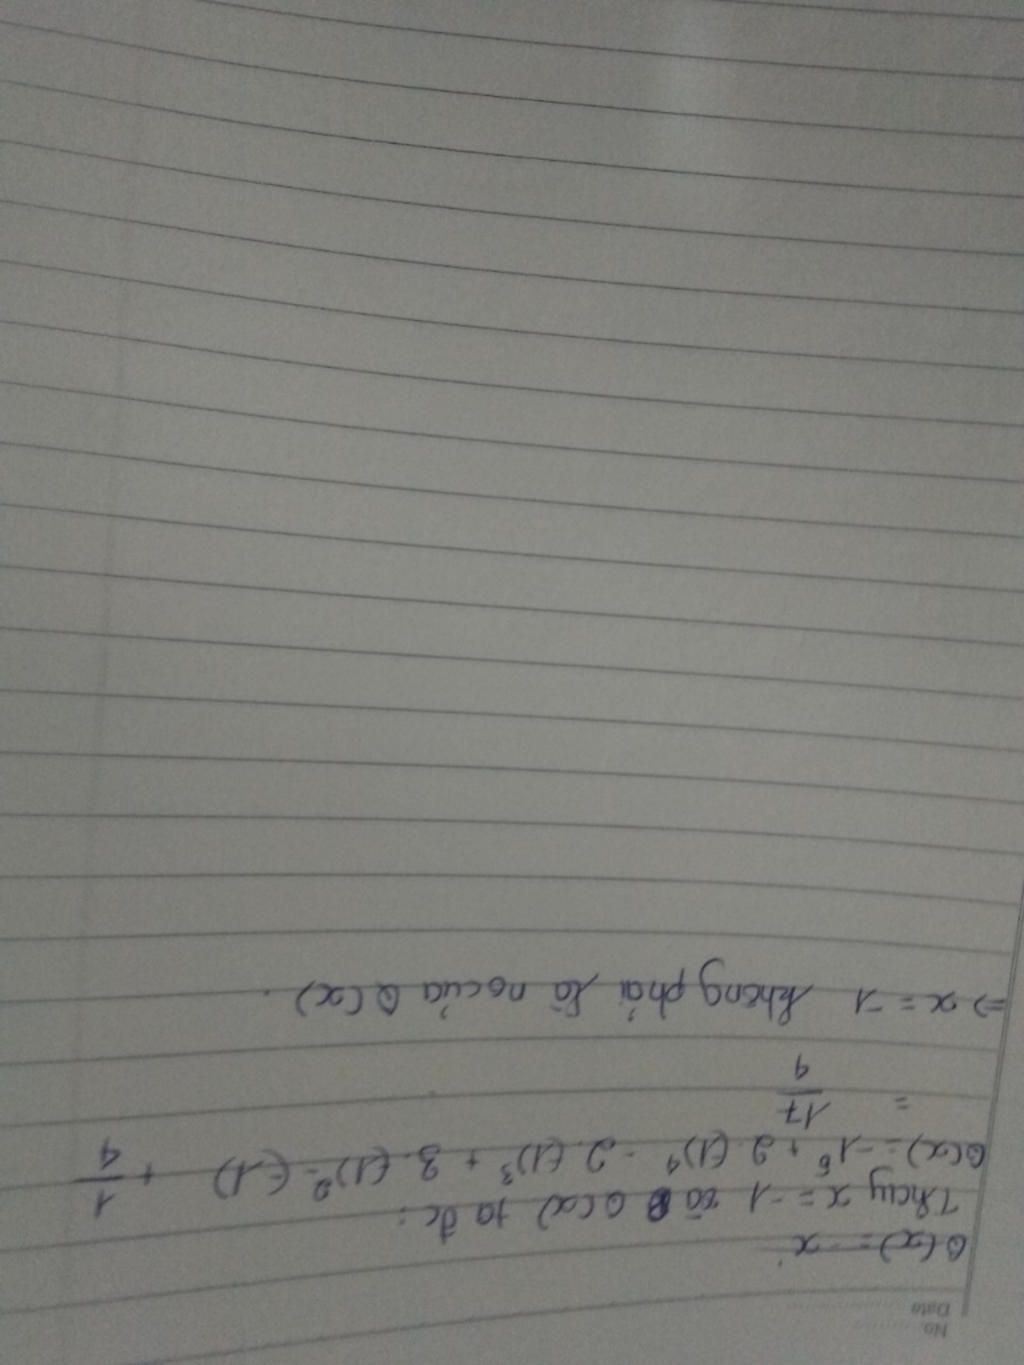 No.
Date
Q(x) = -x
Thay x = -1 vào Q(x) ta đc:
Q(x) = -1⁶ + 2.(-1)⁴ - 2.(-1)³ + 3.(-1)² - (-1) + 1/4
= 17/4
⇒ x = -1 không phải là no của Q(x).